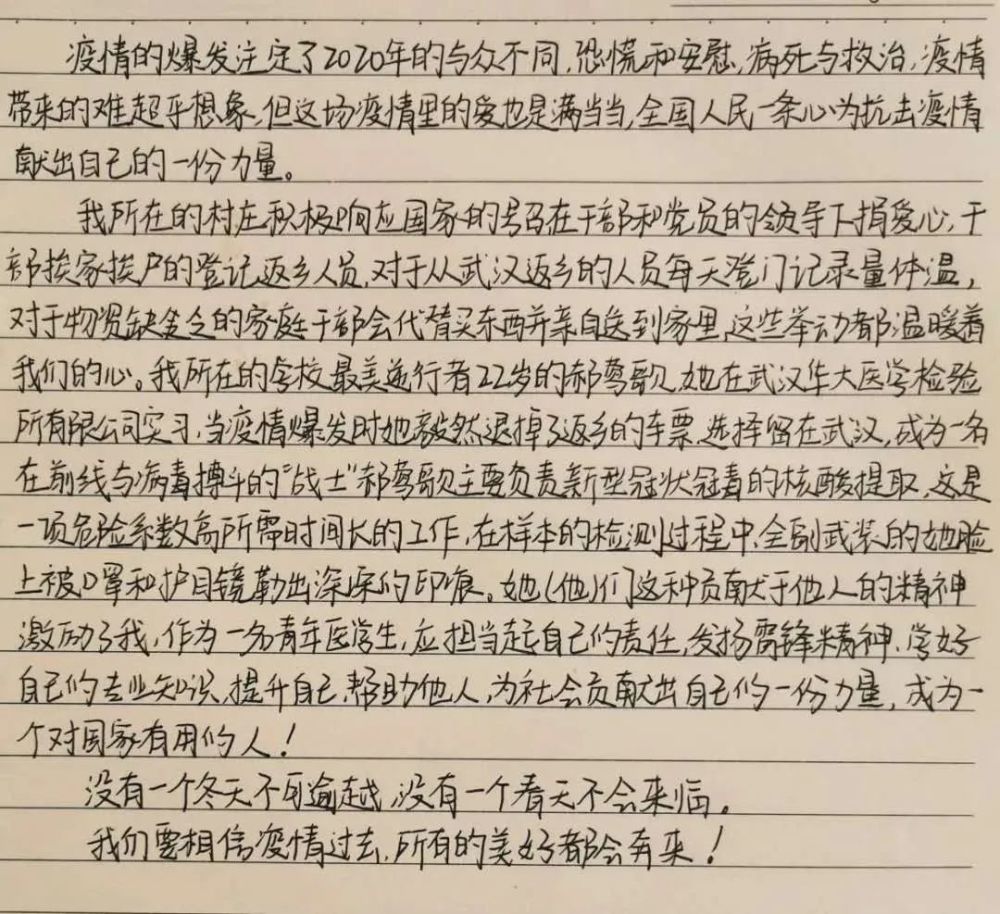 疫情的爆发注定了2020年的与众不同,恐慌和安慰,病死与救治,疫情
带来的难超乎想象,但这场疫情里的爱也是满当当,全国人民一条心为抗击疫情
献出自己的一份力量。
我所在的村庄积极响应国家的号召在干部和党员的领导下捐爱心,干
部挨家挨户的登记返乡人员,对于从武汉返乡的人员每天登门记录量体温,
对于物资缺乏的家庭干部会代替买东西并亲自送到家里,这些举动都温暖着
我们的心。我所在的学校最美逆行者22岁的郝莺歌,她在武汉华大医学检验
所有限公司实习,当疫情爆发时她毅然退掉了返乡的车票,选择留在武汉,成为一名
在前线与病毒搏斗的“战士”郝莺歌主要负责新型冠状冠毒的核酸提取,这是
一项危险系数高所需时间长的工作,在样本的检测过程中,全副武装的她脸
上被口罩和护目镜勒出深深的印痕。她(他)们这种贡献于他人的精神
激励了我,作为一名青年医学生,应担当起自己的责任,发扬雷锋精神、学好
自己的专业知识,提升自己,帮助他人,为社会贡献出自己的一份力量,成为一
个对国家有用的人!
没有一个冬天不可逾越,没有一个春天不会来临。
我们要相信疫情过去,所有的美好都会奔来!